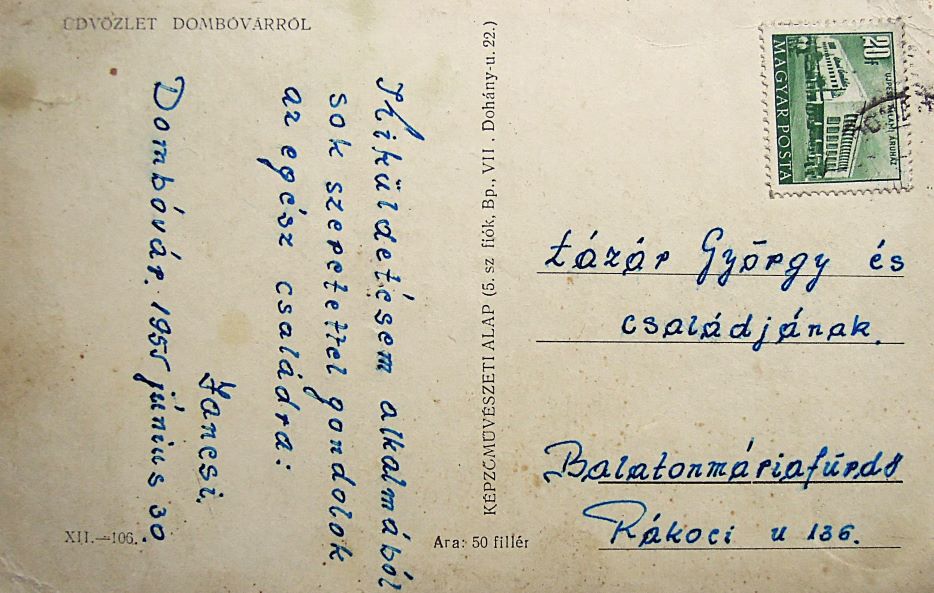 ÜDVÖZLET DOMBÓVÁRRÓL
Kiküldetésem alkalmából
sok szeretettel gondolok
az egész családra:
Jancsi.
Dombóvár. 1955 június 30
XII.—106.
KÉPZŐMŰVÉSZETI ALAP (5. sz fiók, Bp., VII. Dohány-u. 22.)
Ára: 50 fillér
20f
MAGYAR POSTA
ÁRUHÁZ
Lázár György és
családjának.
Balatonmáriafürdő
Rákoci u 136.